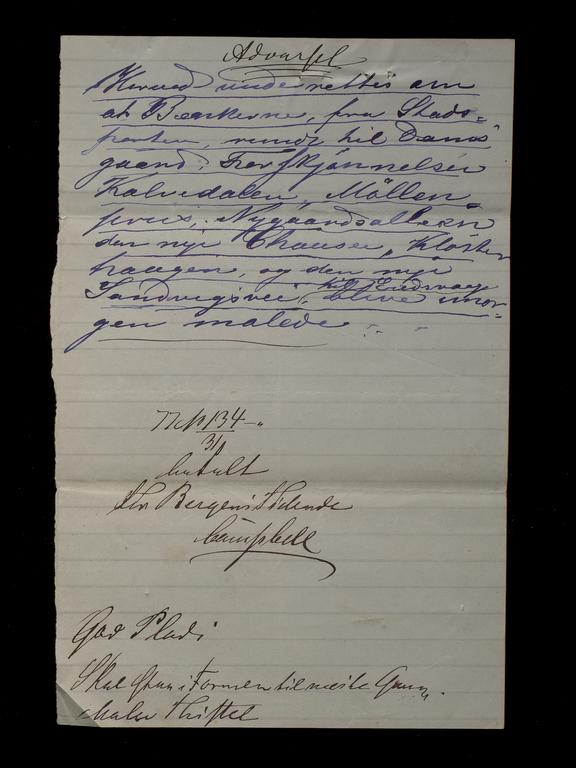 Advarsel
Herved underrettes om
at Bænkerne, fra Stads-
porten, rundt til Dams-
gaard, Forskjønnelsen
Kalvedalen, Möllen-
priis, Nygaardsalleen
den nye Chausee, Kloster-
haugen, og den nye
Sandvigsvei, til Eidsvaag blive imor-
gen malede
No 134
31/
betalt
Bergens Tidende
Campbell
God Plads
Skal staa i Formen til næste Gang.
Maler Thistel